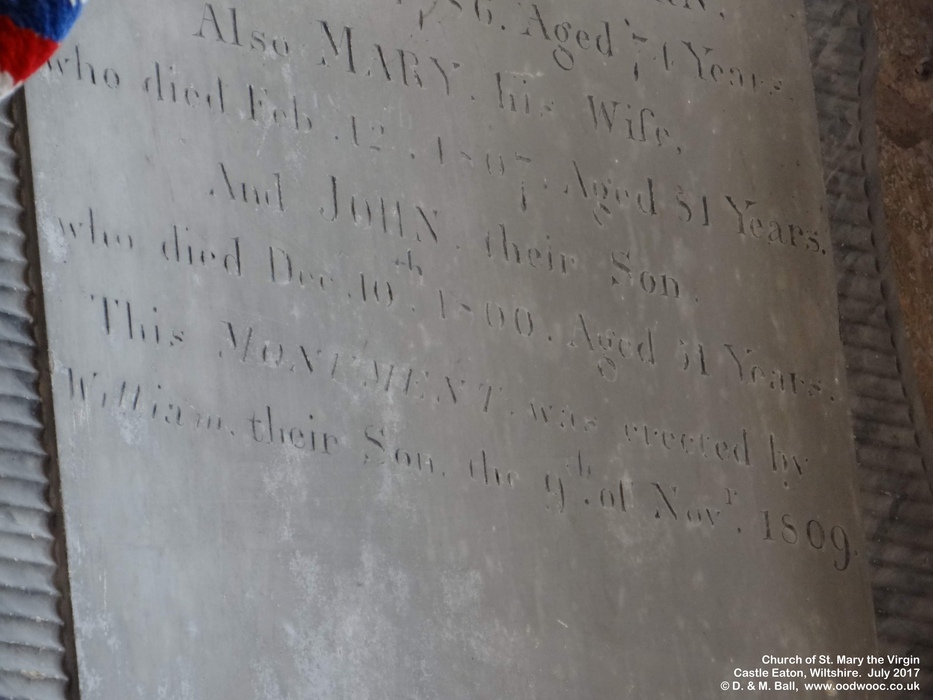 1786. Aged 74 Years.
Also MARY. his Wife,
who died Feb. 12. 1807. Aged 81 Years.
And JOHN. their Son.
who died Dec. 10th. 1800. Aged 51 Years.
This MONUMENT. was erected by
William. their Son. the 9th. of Novr. 1809.
Church of St. Mary the Virgin
Castle Eaton, Wiltshire. July 2017
© D. & M. Ball, www.oodwooc.co.uk